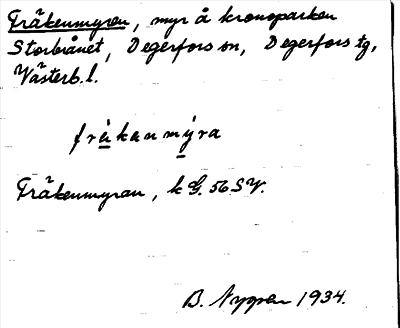 Fräkenmyren, myr å kronoparken
Storbrånet, Degerfors sn, Degerfors tg,
Västerb. l.
fräkanmýra
Fräkenmyran, k G. 56 SV.
B. Nygren 1934.